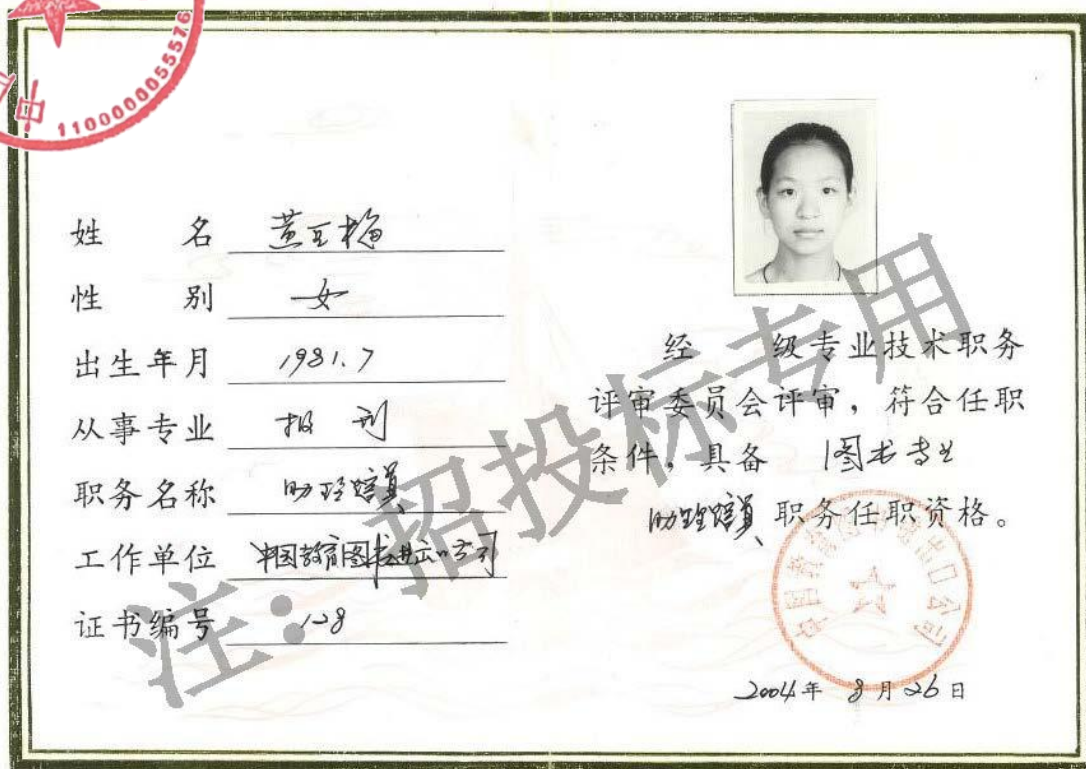 1100000055576
中
姓 名 黄互梅
性 别 女
出生年月 1981.7
从事专业 报刊
职务名称 助理馆员
工作单位 中国教育图书进出口公司
证书编号 128
经 级专业技术职务
评审委员会评审，符合任职
条件，具备 图书专业
助理馆员 职务任职资格。
中国教育图书进出口公司
2004年 8月26日
注：招投标专用